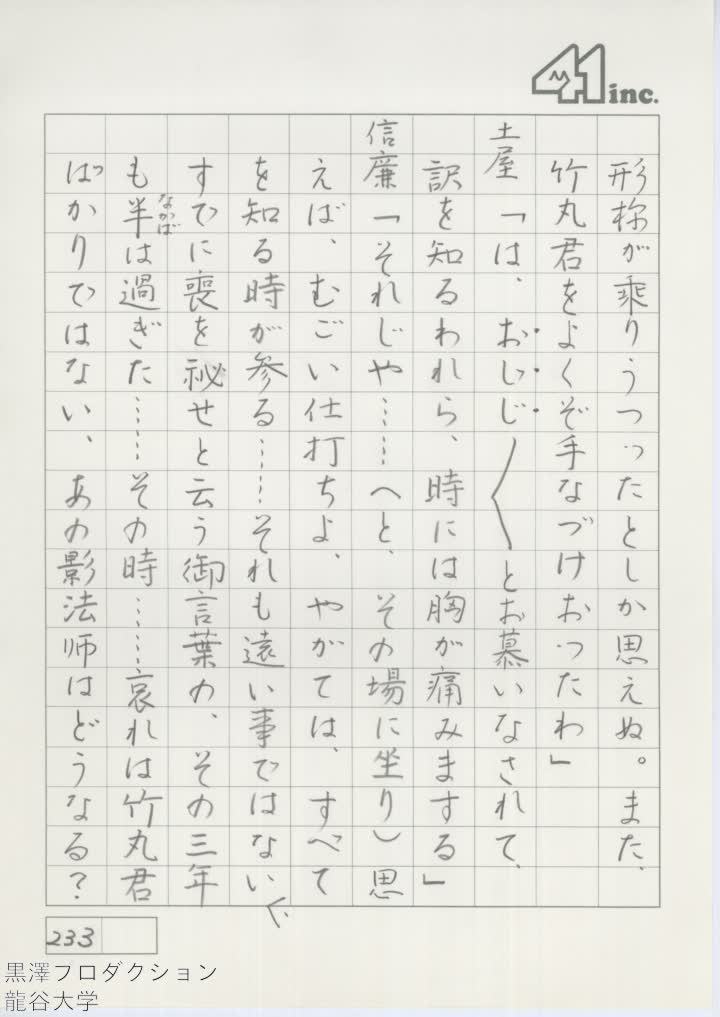 41 inc.
形様が乗りうつったとしか思えぬ。また、
竹丸君をよくぞ手なづけおったわ」
土屋「は、おじじ〳〵とお慕いなされて、
訳を知るわれら、時には胸が痛みまする」
信廉「それじゃ……へと、その場に坐り）思
えば、むごい仕打ちよ、やがては、すべて
を知る時が参る……それも遠い事ではない、
すでに喪を祕せと云う御言葉の、その三年
も半は過ぎた……その時……哀れは竹丸君
なかば
ばっかりではない、あの影法師はどうなる?
233
黒澤プロダクション
龍谷大学